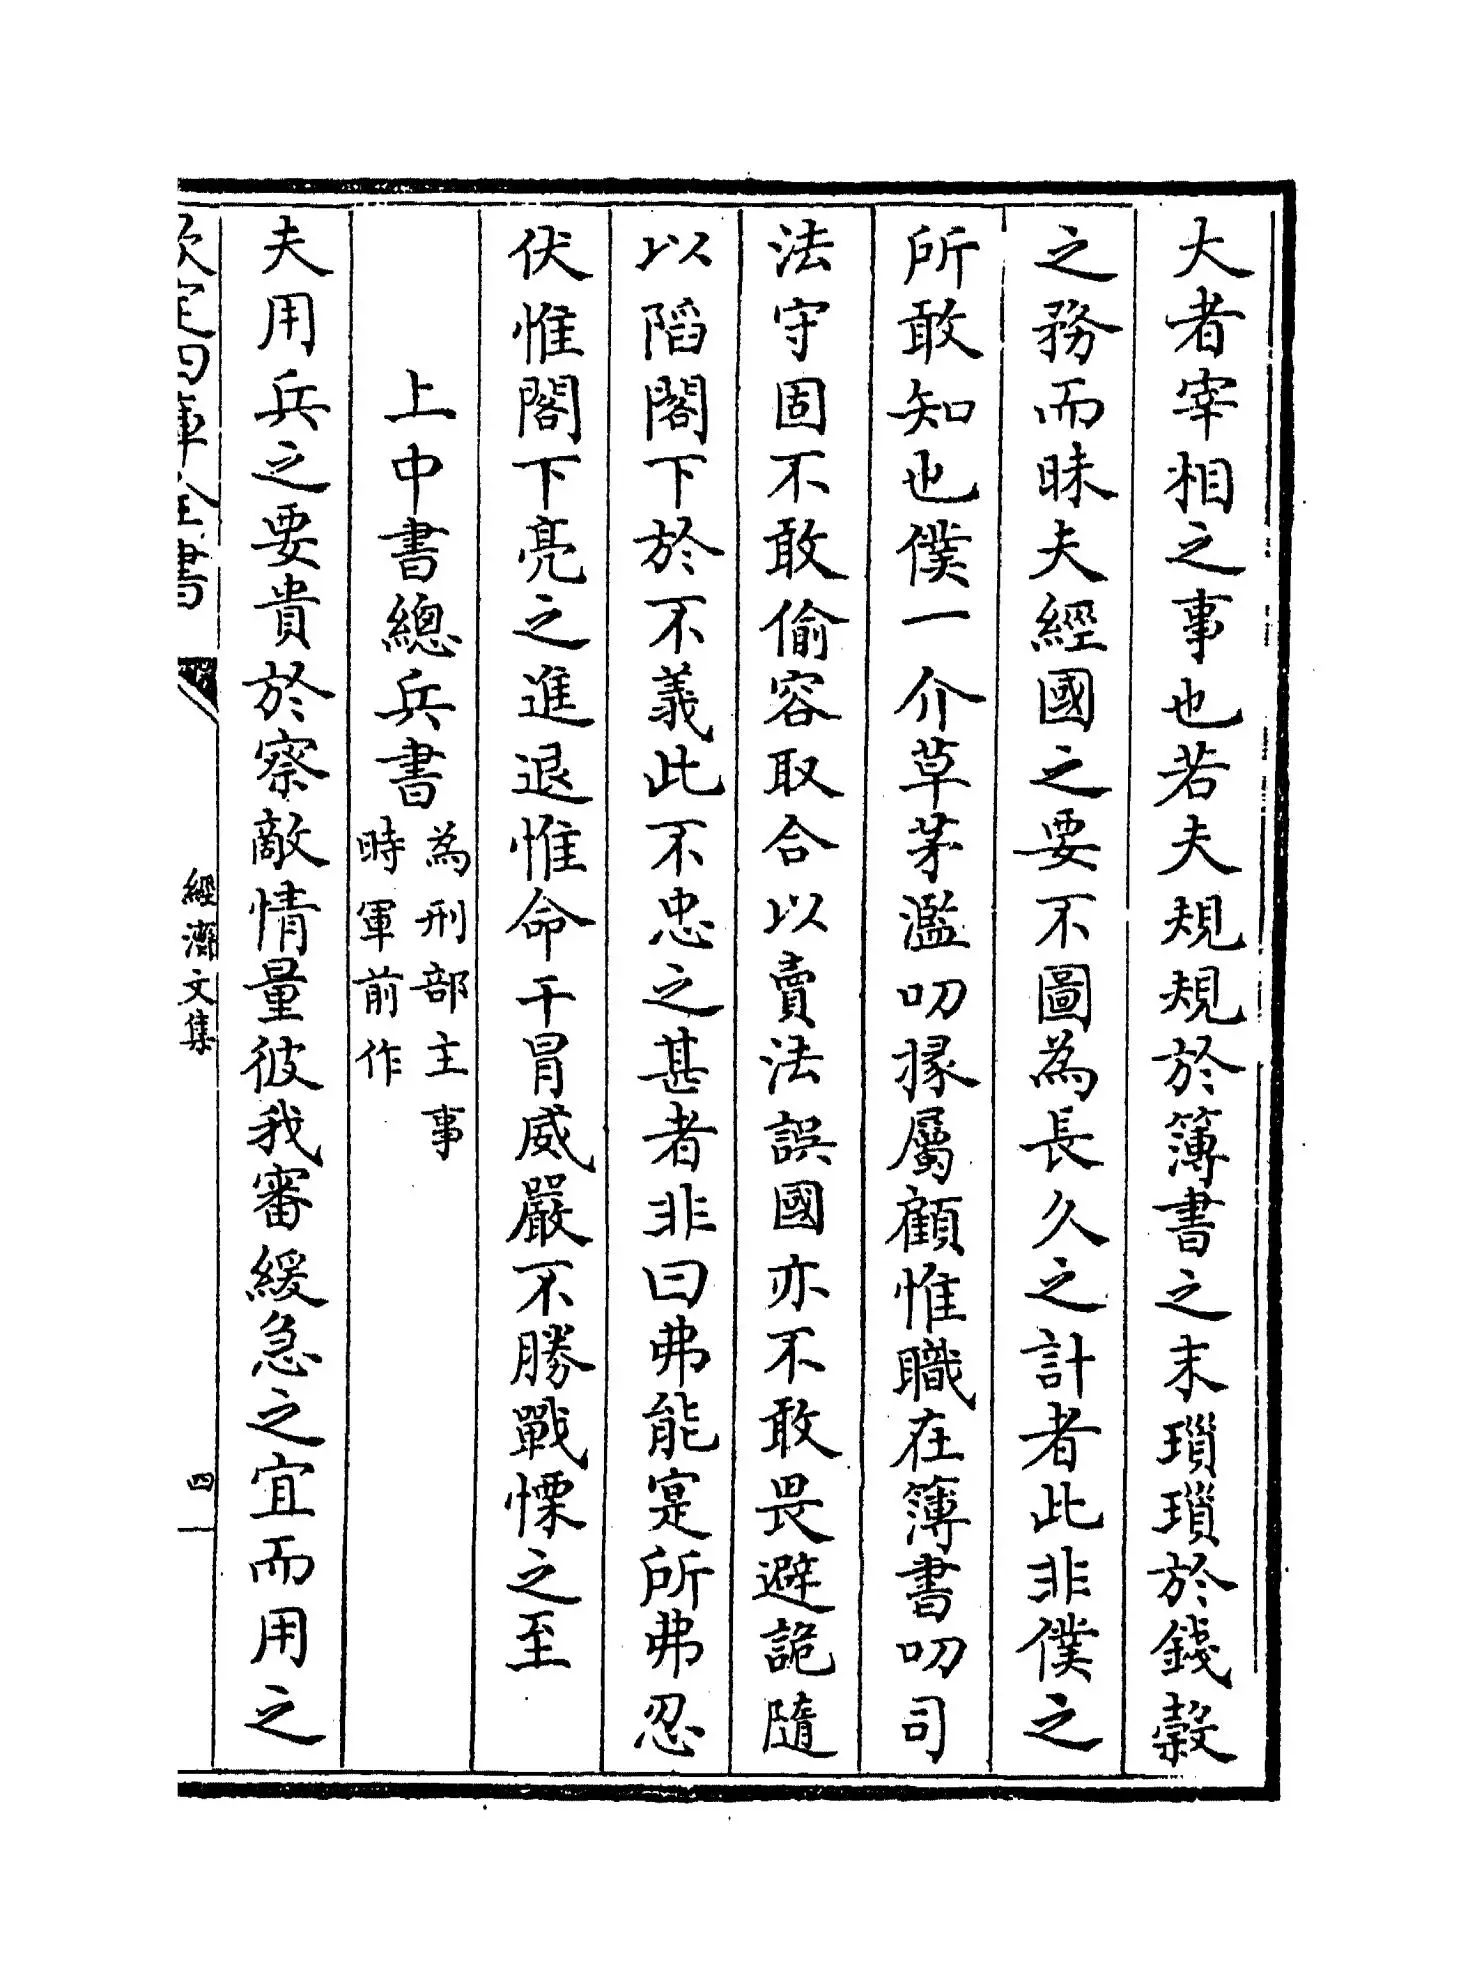 大者宰相之事也若夫規規於簿書之末瑣瑣於錢穀
之務而昧夫經國之要不圖為長久之計者此非僕之
所敢知也僕一介草茅濫叨掾屬顧惟職在簿書叨司
法守固不敢偷容取合以賣法誤國亦不敢畏避詭隨
以陷閣下於不義此不忠之甚者非曰弗能寔所弗忍
伏惟閣下亮之進退惟命干冒威嚴不勝戰慄之至
上中書總兵書為刑部主事
時軍前作
夫用兵之要貴於察敵情量彼我審緩急之宜而用之
欽定四庫全書
經濟文集
四